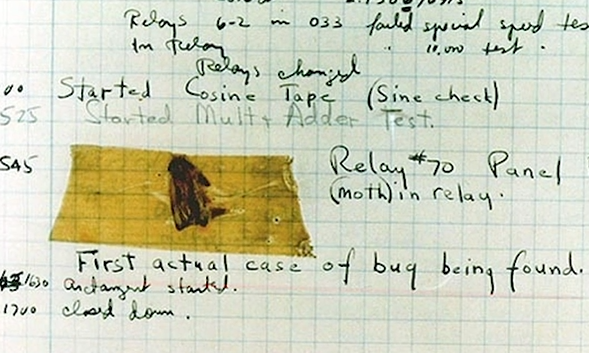 Relays 6-2 in 033 failed special speed tes
In Relay " 10.000 test .
Relays changed
00 Started Cosine Tape (Sine check)
525 Started Mult+ Adder Test.
545 Relay #70 Panel
(moth) in relay.
First actual case of bug being found.
1630 antangent started.
1700 closed down.